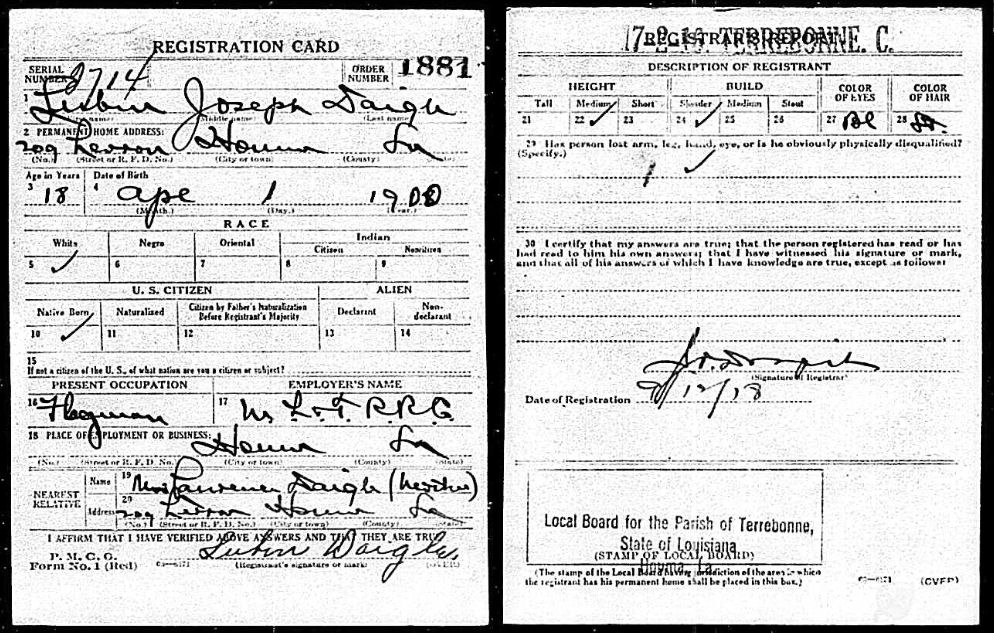 REGISTRATION CARD
SERIAL NUMBER 3714 ORDER NUMBER 1881
1 Lubin Joseph Daigle
(First name) (Middle name) (Last name)
2 PERMANENT HOME ADDRESS:
209 Levron Houma La
(No.) (Street or R. F. D. No.) (City or town) (County) (State)
Age in Years Date of Birth
3 18 4 Ape 1 1900
(Month.) (Day.) (Year.)
RACE
White Negro Oriental Indian
Citizen Noncitizen
5 ✓ 6 7 8 9
U. S. CITIZEN ALIEN
Native Born Naturalized Citizen by Father's Naturalization Before Registrant's Majority Declarant Non-declarant
10 ✓ 11 12 13 14
15
If not a citizen of the U. S., of what nation are you a citizen or subject?
PRESENT OCCUPATION EMPLOYER'S NAME
16 Flagman 17 M L & T R.R.C.
18 PLACE OF EMPLOYMENT OR BUSINESS:
Houma La
(No.) (Street or R. F. D. No.) (City or town) (County) (State)
NEAREST RELATIVE Name 19 Mrs Laurence Daigle (Mother)
Address 20 209 Levron Houma La
(No.) (Street or R. F. D. No.) (City or town) (County) (State)
I AFFIRM THAT I HAVE VERIFIED ABOVE ANSWERS AND THAT THEY ARE TRUE
P. M. G. O.
Form No. 1 (Red) 03—6171 Lubin Daigle
(Registrant's signature or mark) (OVER)
REGISTRAR'S REPORT
17-2-15 TERREBONNE. C.
DESCRIPTION OF REGISTRANT
HEIGHT BUILD COLOR OF EYES COLOR OF HAIR
Tall Medium Short Slender Medium Stout
21 22 ✓ 23 24 ✓ 25 26 27 Bl 28
29 Has person lost arm, leg, hand, eye, or is he obviously physically disqualified?
(Specify.)
30 I certify that my answers are true; that the person registered has read or has
had read to him his own answers; that I have witnessed his signature or mark,
and that all of his answers of which I have knowledge are true, except as follows:
(Signature of Registrar)
Date of Registration 9/12/18
Local Board for the Parish of Terrebonne,
State of Louisiana
(STAMP OF LOCAL BOARD)
Houma, La.
(The stamp of the Local Board having jurisdiction of the area in which
the registrant has his permanent home shall be placed in this box.)
03—6171 (OVER)